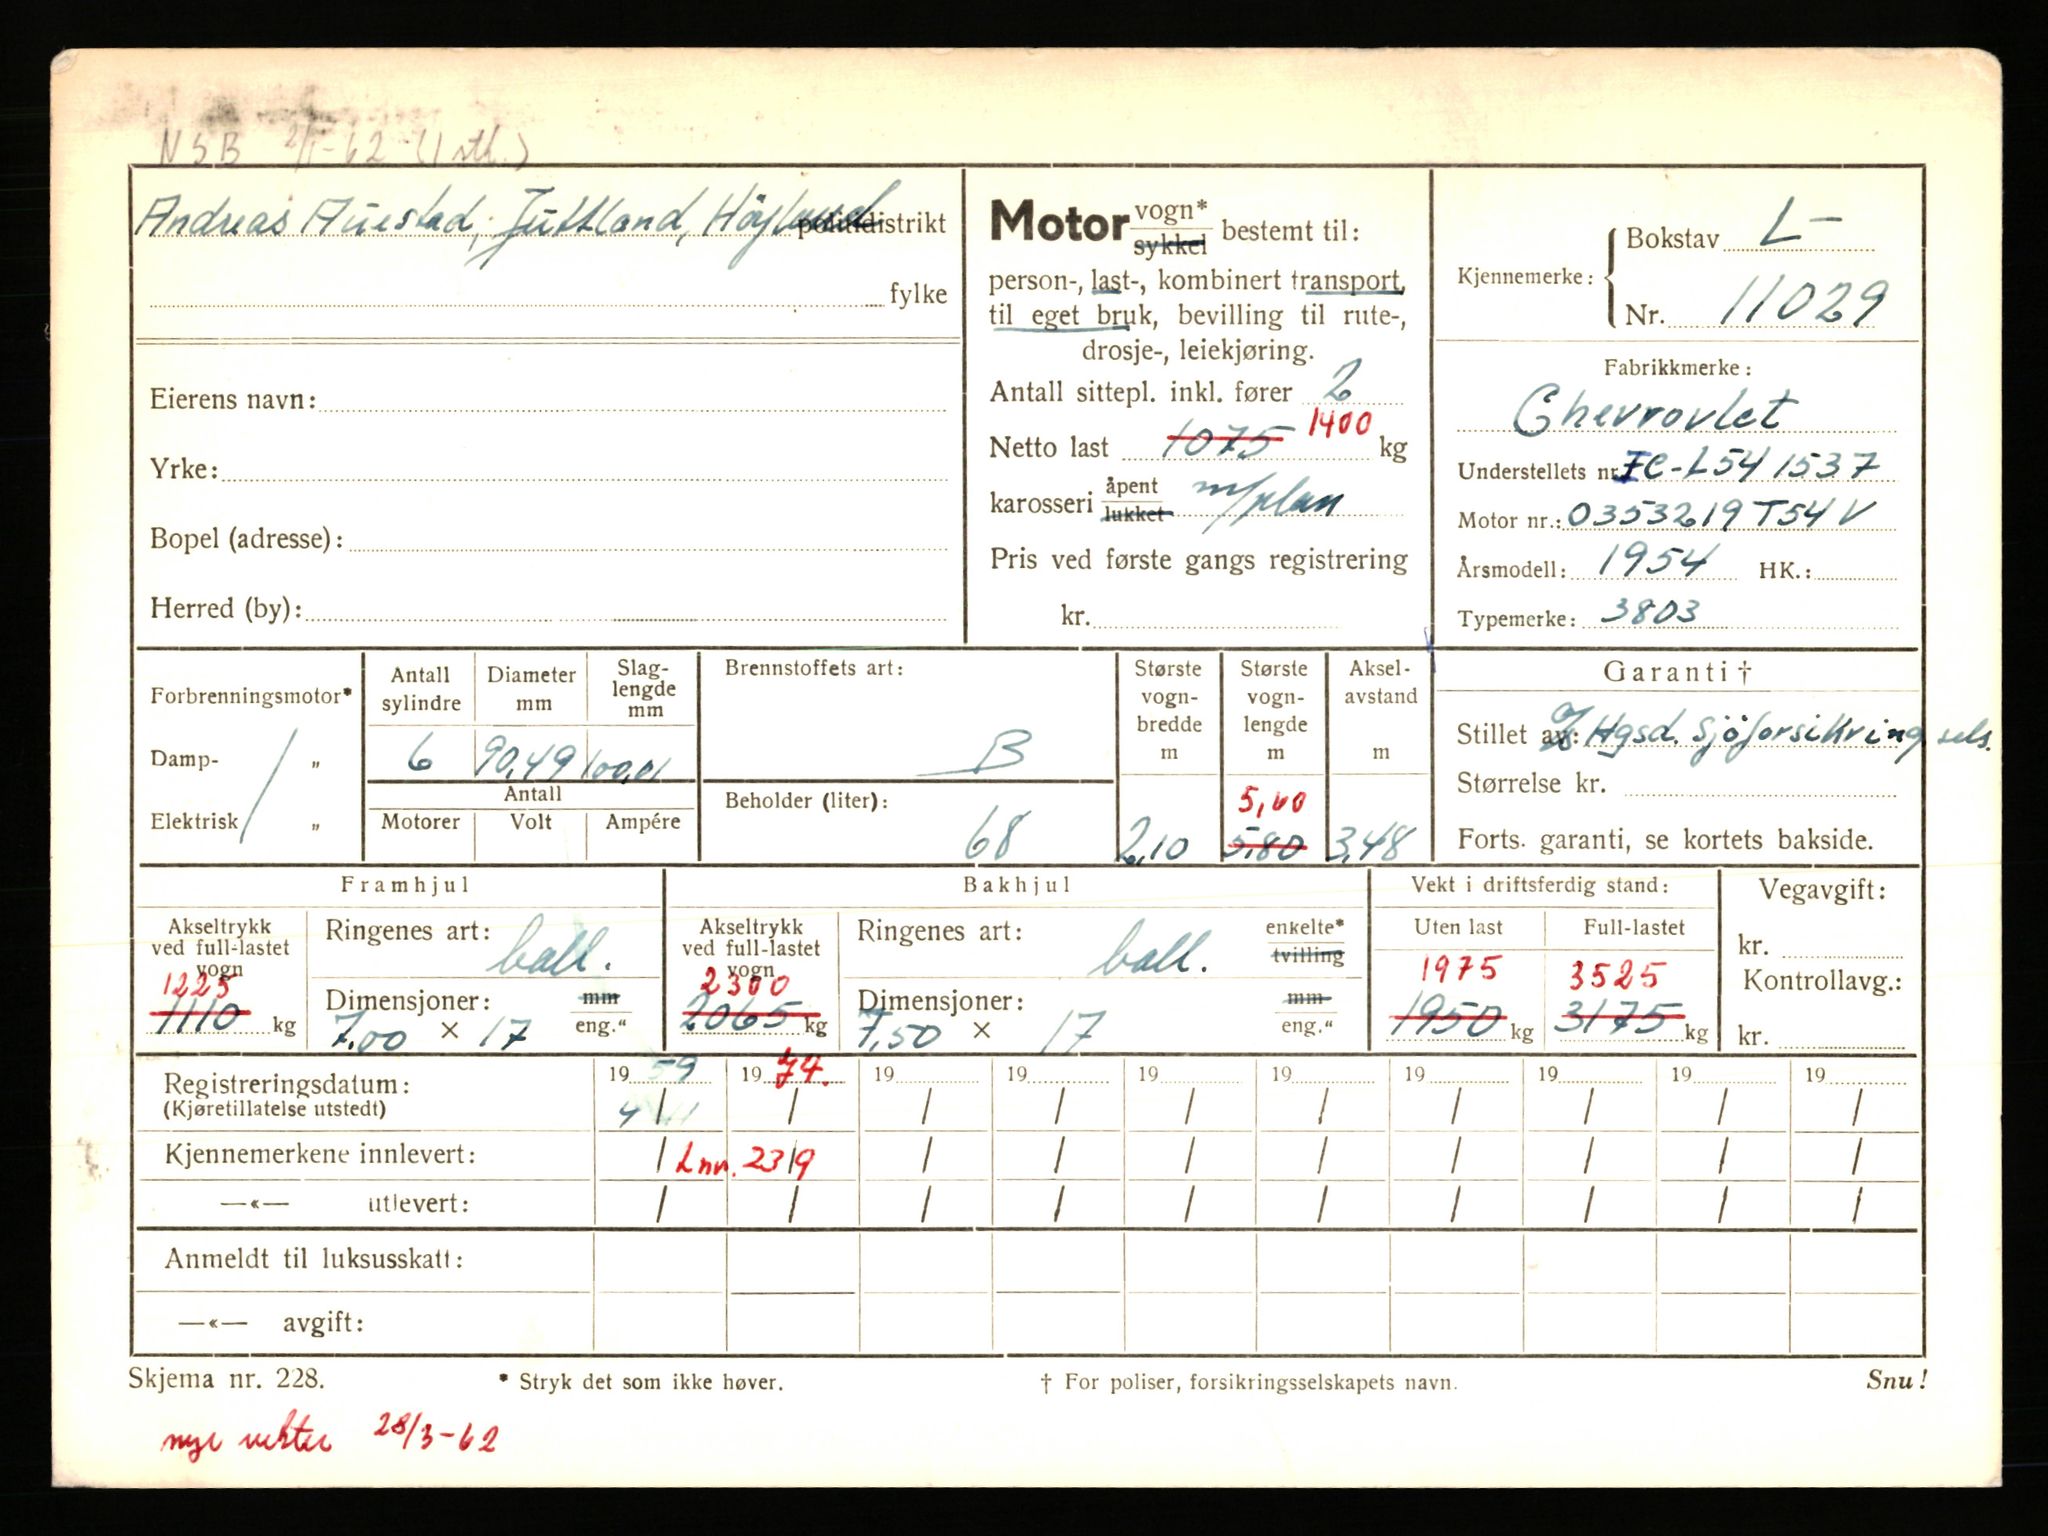 NSB 2/1-62 (1 stk.)
Andreas Auestad, Juttland, Höyland politidistrikt
fylke
Eierens navn:
Yrke:
Bopel (adresse):
Herred (by):
Motor vogn* sykkel bestemt til:
person-, last-, kombinert transport,
til eget bruk, bevilling til rute-,
drosje-, leiekjøring.
Antall sittepl. inkl. fører 2
1400
Netto last 1075 kg
karosseri åpent lukket m/plan
Pris ved første gangs registrering
kr.
Kjennemerke: Bokstav L-
Nr. 11029
Fabrikkmerke:
Chevrovlet
Understellets nr. FC-L54 1537
Motor nr.: 0353219 T54V
Årsmodell: 1954 HK.:
Typemerke: 3803
Forbrenningsmotor*
Damp- „
Elektrisk „
Antall sylindre Diameter mm Slag-lengde mm
6 90,49 100,01
Antall
Motorer Volt Ampére
Brennstoffets art:
B
Beholder (liter):
68
Største vogn-bredde m
2,10
Største vogn-lengde m
5,60
5,80
Aksel-avstand m
3,48
Garanti †
Stillet av: Hgsd. Sjöforsikring sels.
Størrelse kr.
Forts. garanti, se kortets bakside.
Framhjul
Akseltrykk ved full-lastet vogn
1225
1110 kg
Ringenes art: ball.
Dimensjoner: mm
7,00 × 17 eng."
Bakhjul
Akseltrykk ved full-lastet vogn
2300
2065 kg
Ringenes art: ball. enkelte* tvilling
Dimensjoner: mm
7,50 × 17 eng."
Vekt i driftsferdig stand:
Uten last Full-lastet
1975 3525
1950 kg 3175 kg
Vegavgift:
kr.
Kontrollavg.:
kr.
Registreringsdatum: 19 59 19 74. 19 19 19 19 19 19 19 19
(Kjøretillatelse utstedt) 4/11 / / / / / / / / /
Kjennemerkene innlevert: / Lnr. 23/9 / / / / / / / /
—«— utlevert: / / / / / / / / / /
Anmeldt til luksusskatt:
—«— avgift:
Skjema nr. 228. * Stryk det som ikke høver. † For poliser, forsikringsselskapets navn. Snu!
nye vekter 28/3-62